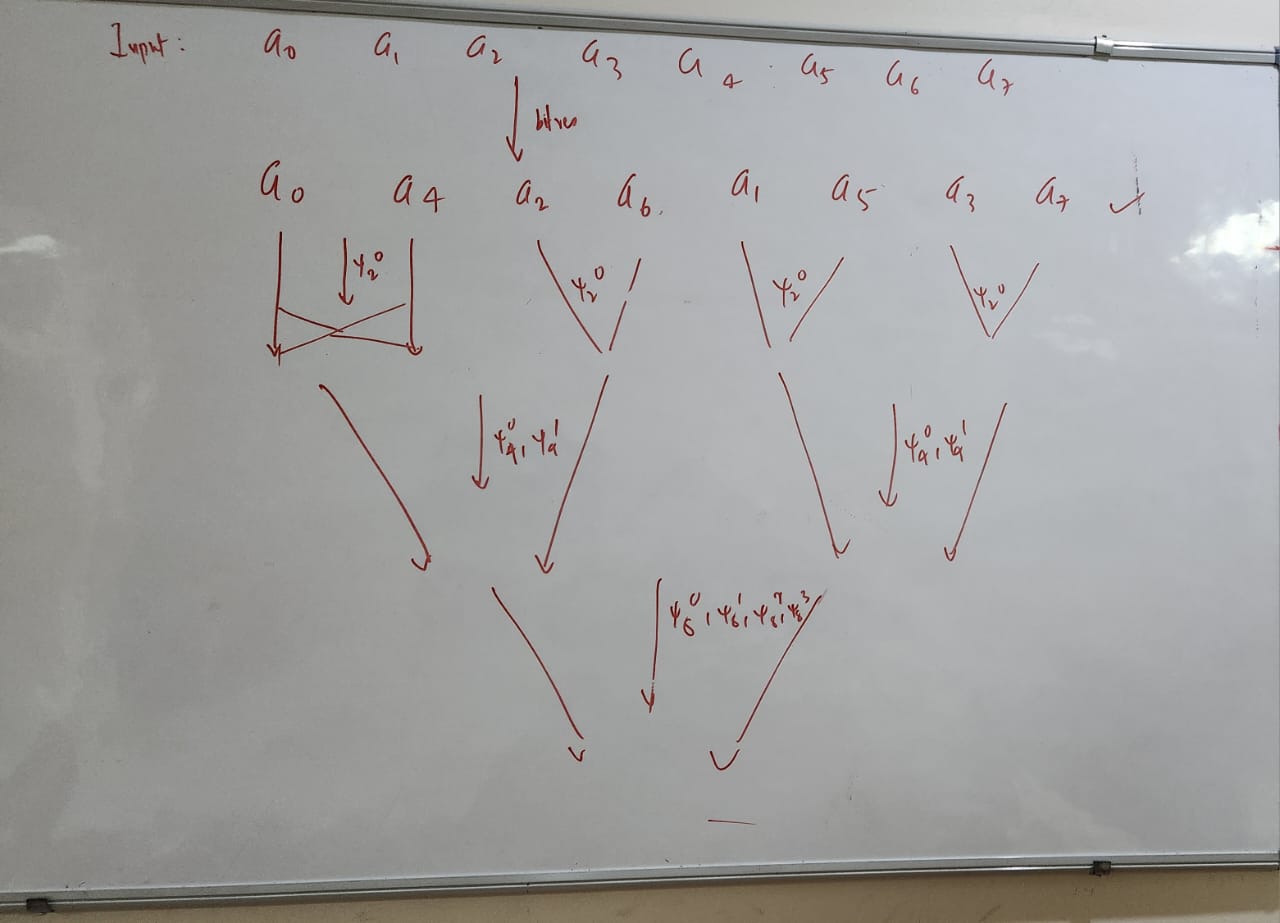 Input: a₀ a₁ a₂ a₃ a₄ a₅ a₆ a₇
bitrev
a₀ a₄ a₂ a₆ a₁ a₅ a₃ a₇ ✓
ψ₂⁰ ψ₂⁰ ψ₂⁰ ψ₂⁰
ψ₄⁰, ψ₄¹ ψ₄⁰, ψ₄¹
ψ₈⁰, ψ₈¹, ψ₈², ψ₈³